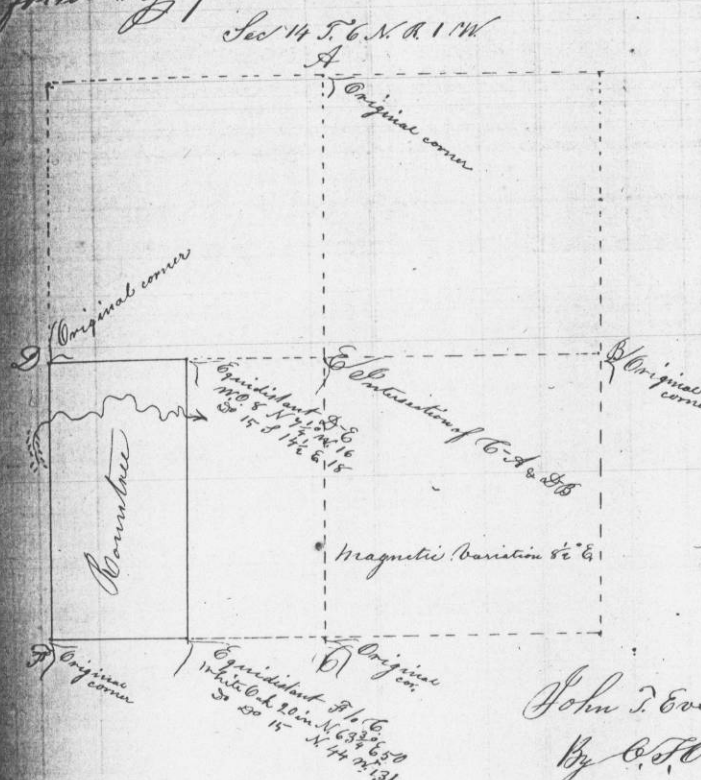 Sec 14 T. 6 N. R. 1 W
A
Original corner
Original corner
D
E Intersection of C-A & DB
B Original
corner
Equidistant D-E
W.O. 8 N 16
Do 15 S 14½ E 18
Rountree
Magnetic Variation 8½° E
F Original
corner
Equidistant F to C.
White Oak 20 in N. 63¾ E 50
Do Do 15 N. 44 W. 131
C Original
cor.
John T. Eve
By